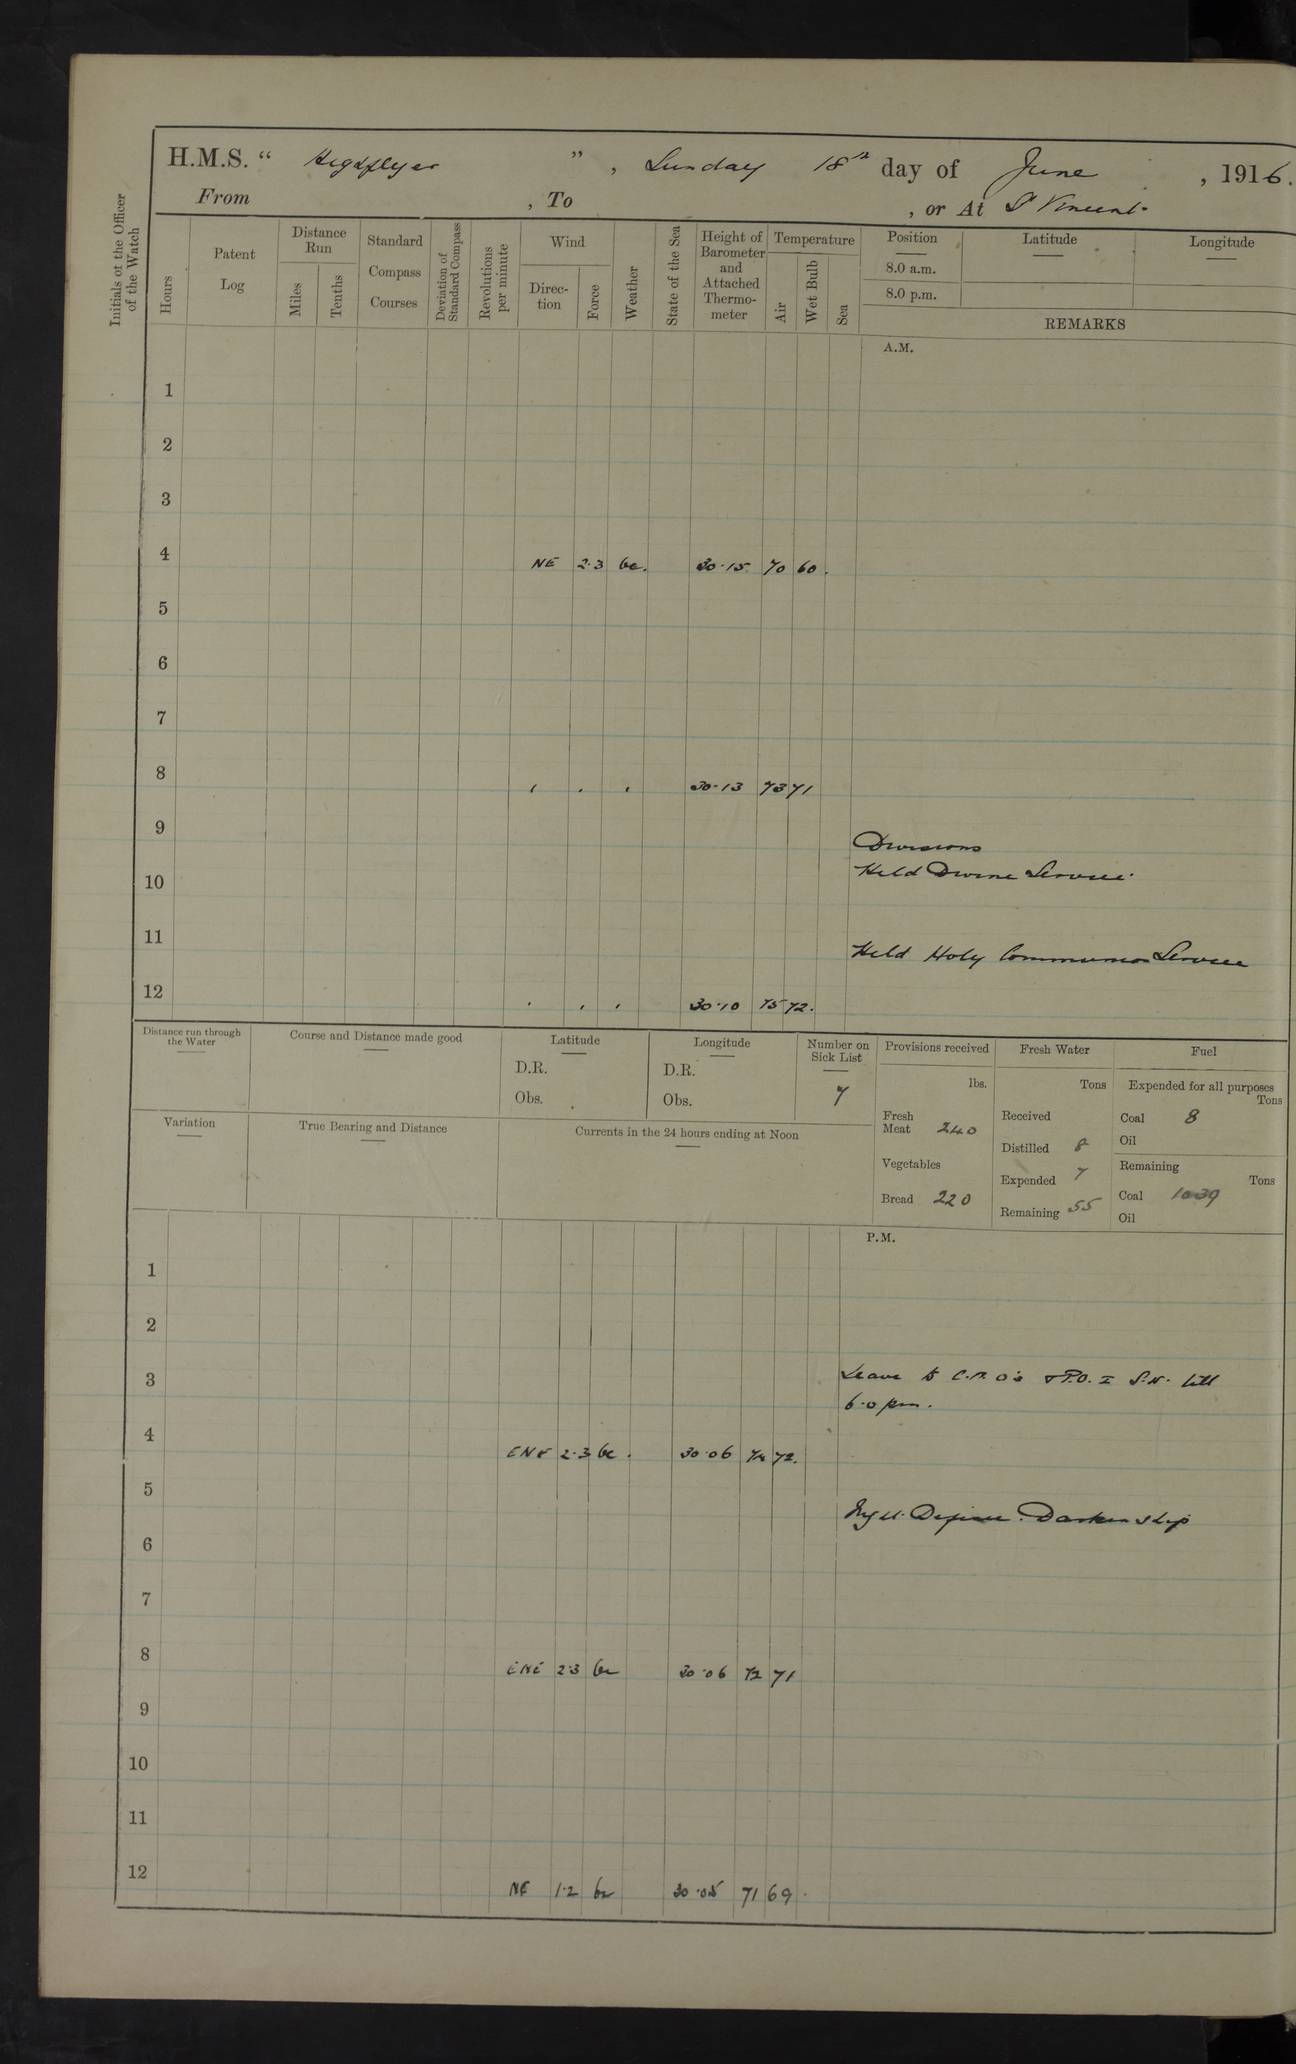 H.M.S. “ Highflyer ” , Sunday 18th day of June , 1916.
From , To , or At St Vincent.
Initials of the Officer of the Watch
Hours
Patent Log
Distance Run
Miles
Tenths
Standard Compass Courses
Deviation of Standard Compass
Revolutions per minute
Wind
Direc-tion
Force
Weather
State of the Sea
Height of Barometer and Attached Thermo-meter
Temperature
Air
Wet Bulb
Sea
Position
8.0 a.m.
8.0 p.m.
Latitude
Longitude
REMARKS
A.M.
1
2
3
4 NE 2.3 bc. 30.15 70 60.
5
6
7
8 , . , 30.13 73 71
9 Divisions
10 Held Divine Service.
11 Held Holy Communion Service
12 . , , 30.10 75 72.
Distance run through the Water
Course and Distance made good
Latitude
D.R.
Obs.
Longitude
D.R.
Obs.
Number on Sick List
7
Provisions received
lbs.
Fresh Meat 240
Vegetables
Bread 220
Fresh Water
Tons
Received
Distilled 8
Expended 7
Remaining 55
Fuel
Expended for all purposes
Tons
Coal 8
Oil
Remaining
Tons
Coal 1039
Oil
Variation
True Bearing and Distance
Currents in the 24 hours ending at Noon
P.M.
1
2
3 Leave to C.P.O's & P.O. I S.N. till
6.0 pm.
4 ENE 2.3 bc. 30.06 74 72.
5
Night Defence. Darken ship
6
7
8 ENE 2.3 bc 30.06 72 71
9
10
11
12 NE 1.2 bc 30.05 71 69.